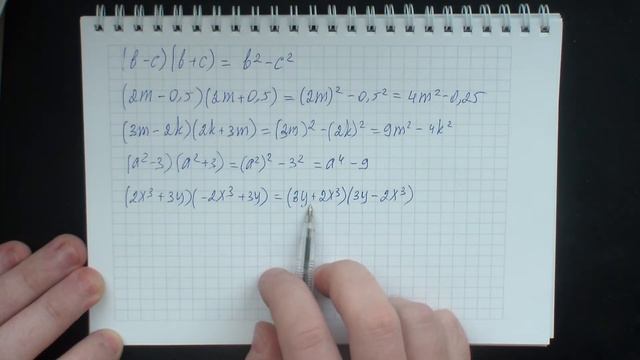 (b-c)(b+c) = b²-c²
(2m-0,5)(2m+0,5) = (2m)²-0,5² = 4m²-0,25
(3m-2k)(2k+3m) = (3m)²-(2k)² = 9m²-4k²
(a²-3)(a²+3) = (a²)²-3² = a⁴-9
(2x³+3y)(-2x³+3y) = (3y+2x³)(3y-2x³)